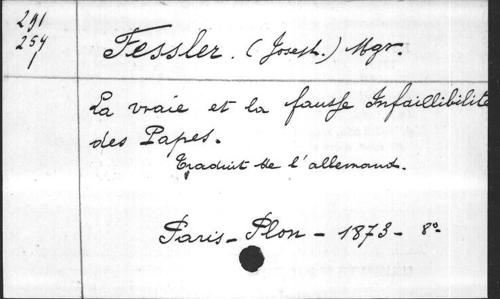 291
254
Fessler. (Joseph.) Mgr.
La vraie et la fausse Infaillibilité
des Papes.
Traduit de l'allemand.
Paris - Plon - 1873 - 8°